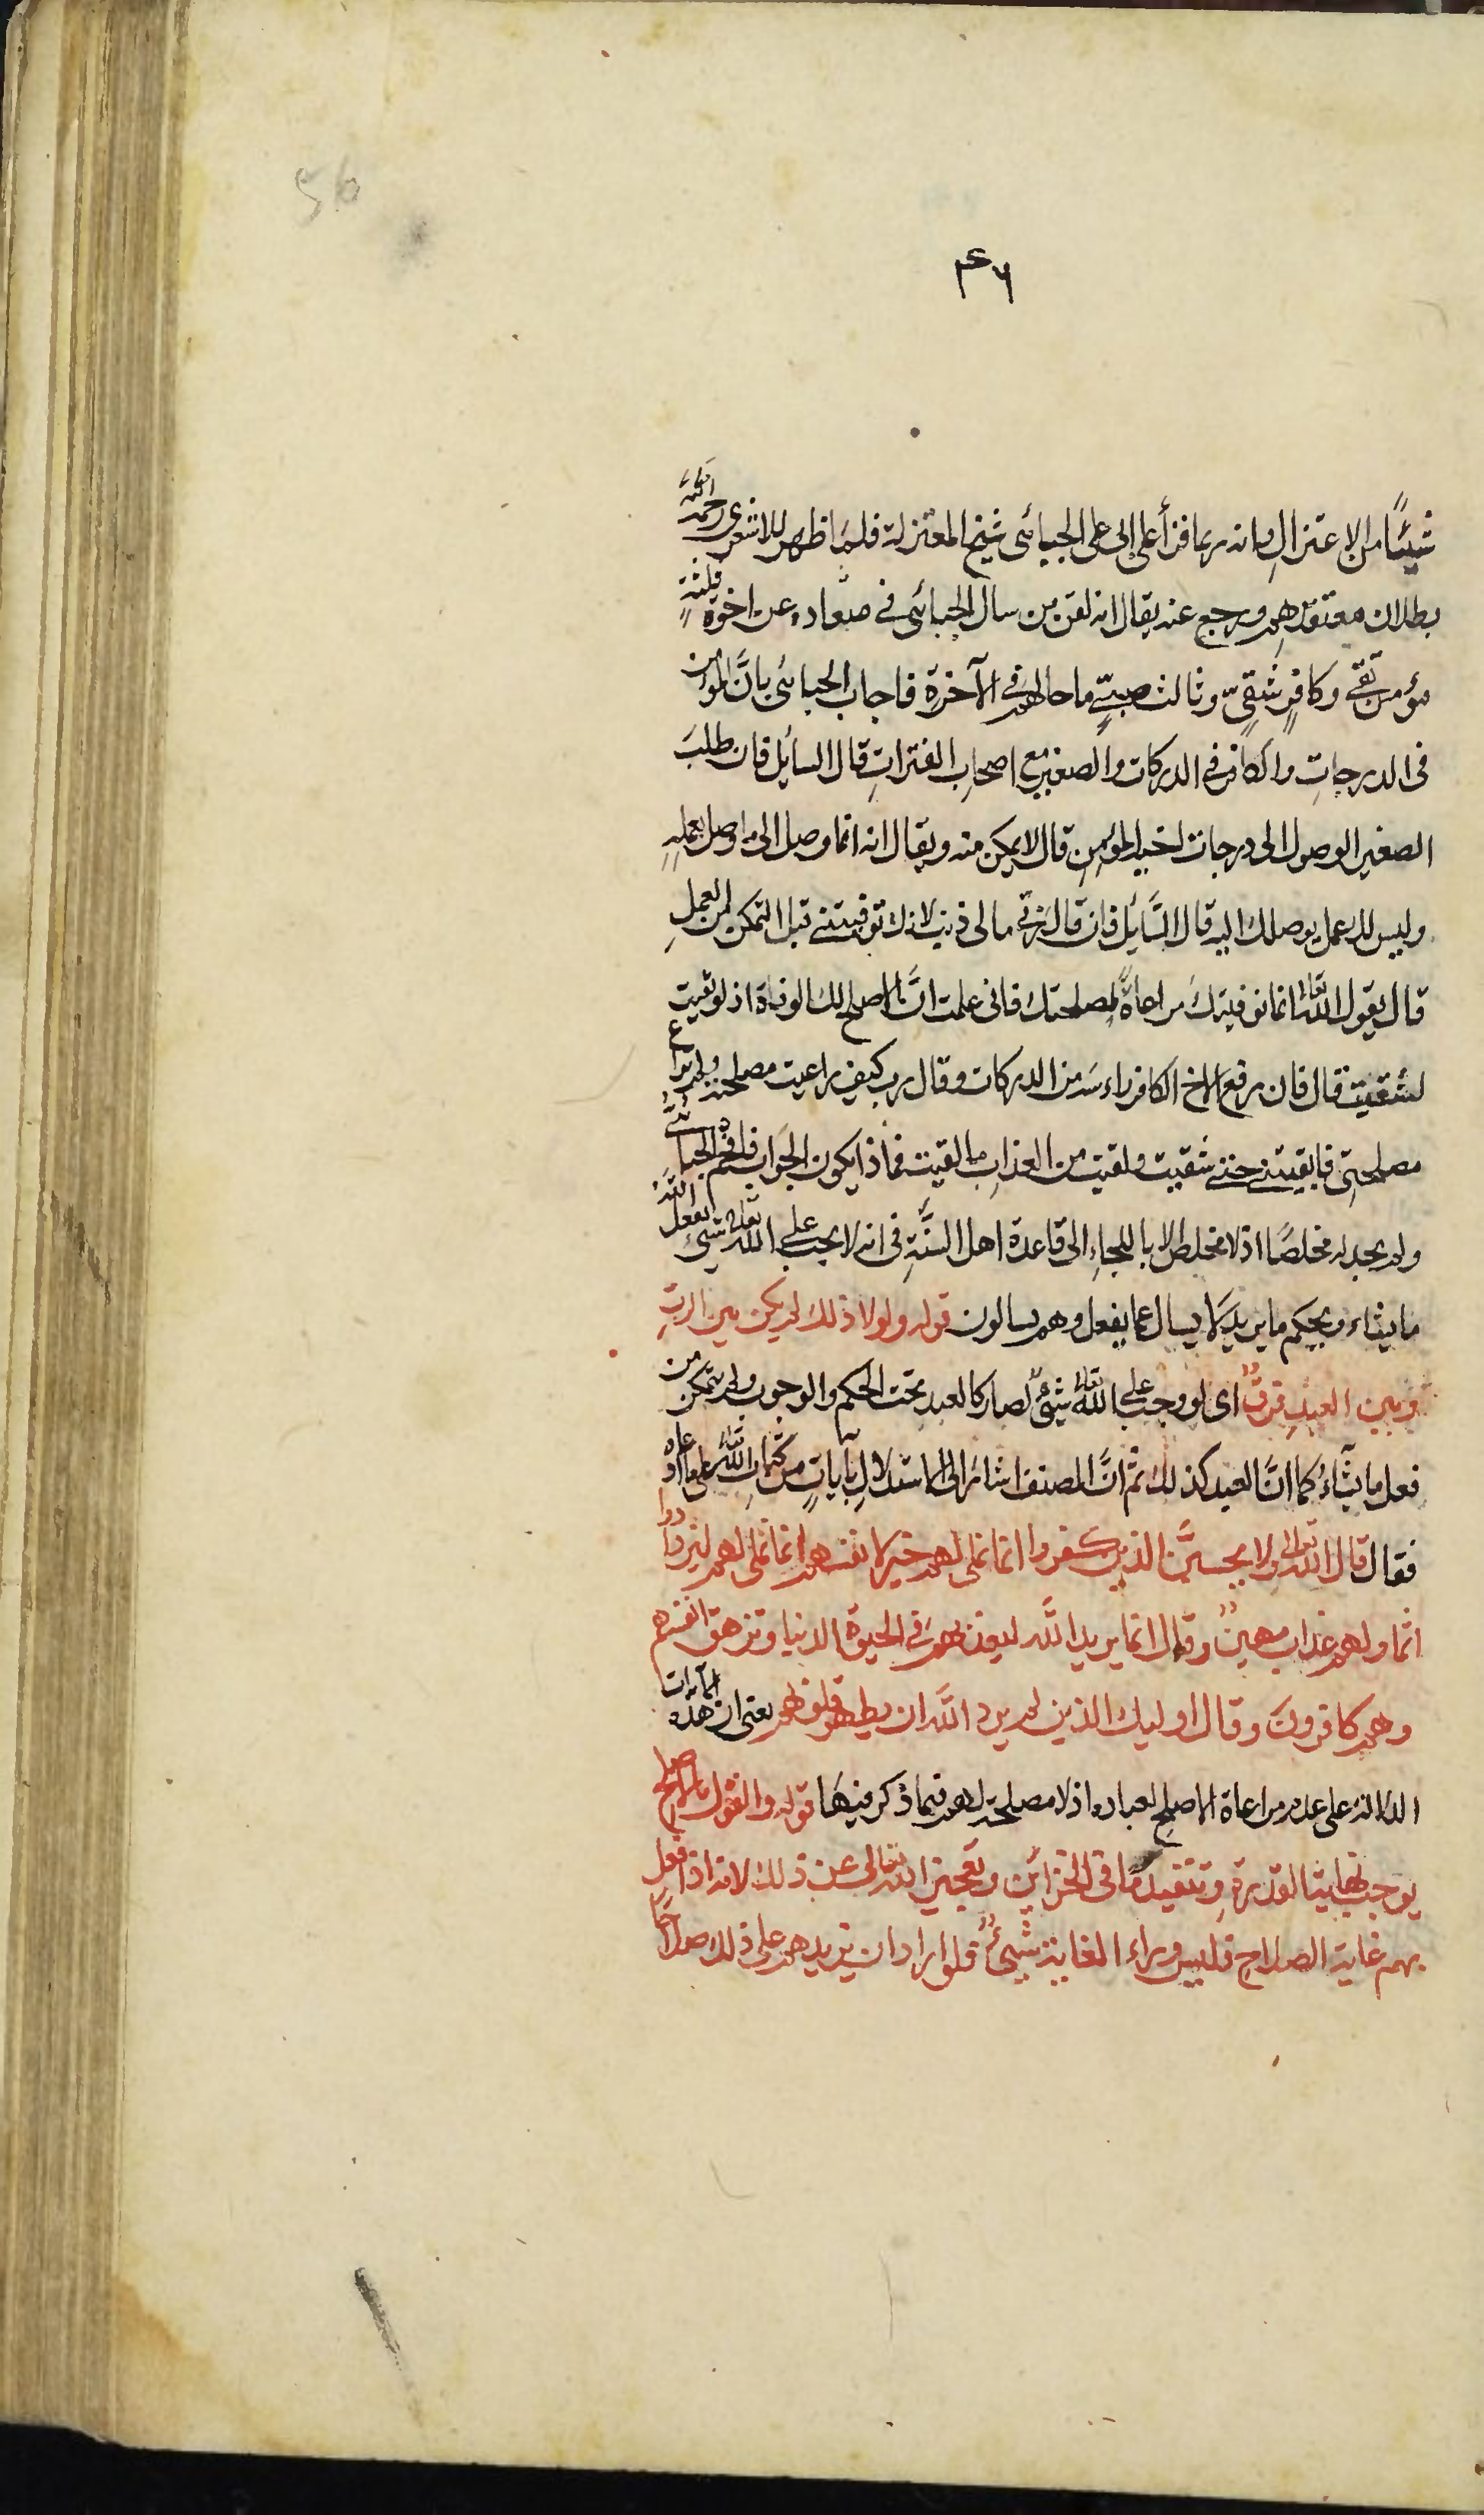 56
۴۶
شيئًا من الاعتزال وانه ربما قرأ على ابى على الجبائى شيخ المعتزلة فلما ظهر للاشعرى رحمه الله
بطلان معتقدهم ورجع عنه يقال انه سال الجبائى فى عن اخوة ثلثة
مؤمن تقى وكافرٍ شقىٍّ وثالث صبىٍّ ما حالهم فى الآخرة فاجاب الجبائى بانَّ المؤمن
فى الدرجاتِ والكافر فى الدركات والصغير مع اصحابِ الفتراتِ قال السائل فان طلبَ
الصغير الوصول الى درجات اخيه المؤمنِ قال لا يمكن منه ويقال انه انما وصل الى ما وصل بعملِهِ
وليس لك عمل يوصلك اليه قال السَّائل فان قال رب مالى ذنب لانك توفيتنى قبل التمكن من العملِ
قال يقول الله تعالى انما توفيتك مراعاةً لمصلحتك فانى علمت انَّ الاصلح لك الوفاة اذ لو بقيت
لشقيت قال فان رفع الاخ الكافر راءسه من الدركات وقال رب كيف راعيت مصلحته ولم تراع
مصلحتى فابقيتنى حتى شقيت ولقيت من العذابِ ما لقيت فماذا يكون الجواب فافحم الجبائى
ولم يجد له مخلصًا اذ لا مخلص الا باللجاءِ الى قاعدة اهل السنَّةِ فى انه لا يجب على الله تعالى شىء يفعل الله
ما يشاء ويحكم ما يريد لا يسال عما يفعل وهم يسالون قوله ولولا ذلك لم يكن بين الربِ
وبين العبدِ فرقٌ اى لو وجب على الله تعالى شىءٌ لصار كالعبد تحت الحكم والوجوب ولم يتمكن من
فعل ما يشآءُ كما انَّ العبد كذلك ثم انَّ المصنف اشار الى الاستدلالِ بآياتٍ من كتابِ الله تعالى على ما ادعاه
فقال قال الله تعالى ولا يحسبنَّ الذين كفروا انما نملى لهم خير لانفسهم انما نملى لهم ليزدادوا
اثما ولهم عذاب مهينٌ وقال انما يريد الله ليعذبهم فى الحيوة الدنيا وتزهق انفسهم
وهم كافرونَ وقال اوليك الذين لم يرد الله ان يطهر قلوبهم يعنى ان هذه الآيات
الدلالة على عدم مراعاة الاصلح لعباده اذ لا مصلحة لهم فيما ذكر فيهَا قوله والقول بالاصلح
يوجب نهاية القدرةِ وتنفيد ما فى الخزائن وتعجيز الله تعالى عن ذلك لانه اذا فعل
بهم غاية الصلاح فليس وراء الغاية شىءٌ فلو اراد ان يزيدهم على ذلك صلاحًا